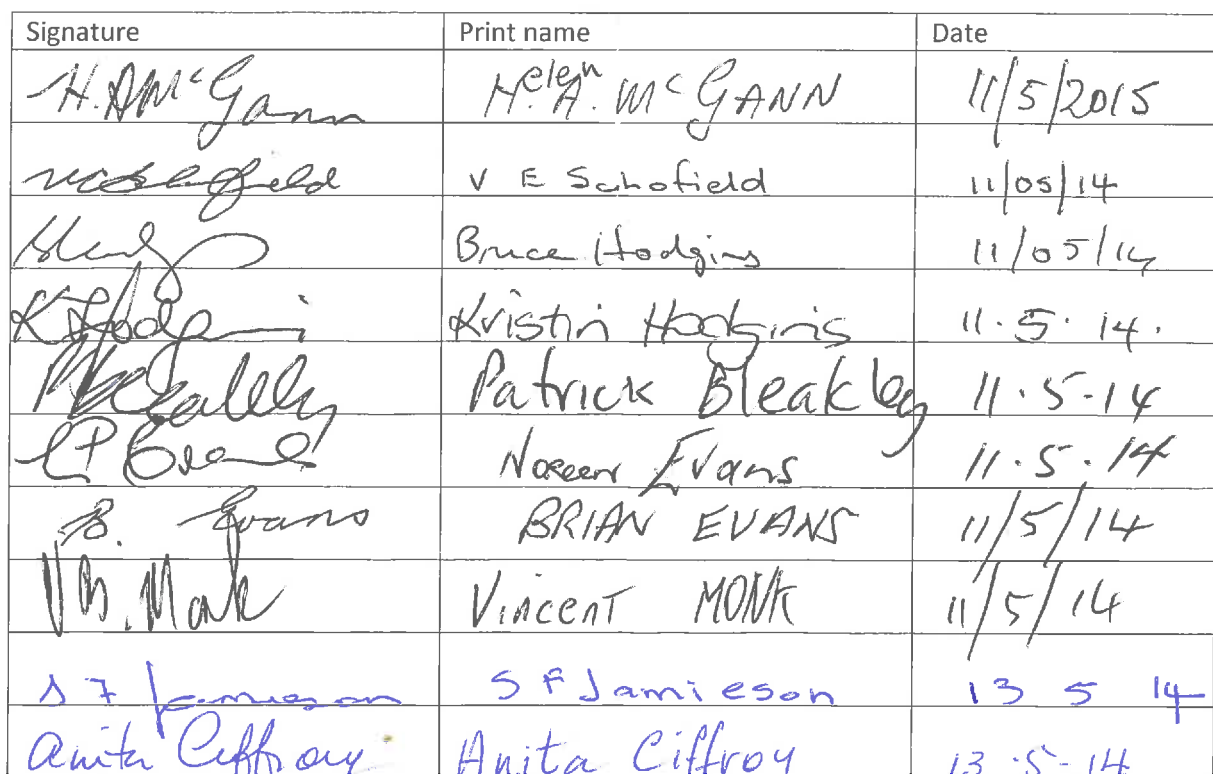 Signature Print name Date
H.A McGann Helen A. McGANN 11/5/2015
V E Schofield 11/05/14
Bruce Hodgins 11/05/14
K Hodgins Kristin Hodgins 11.5.14.
Patrick Bleakley 11.5-14
Evans 11.5.14
B. Evans BRIAN EVANS 11/5/14
V B. Monk Vincent MONK 11/5/14
S F Jamieson S F Jamieson 13 5 14
Anita Ciffroy Anita Ciffroy 13.5-14